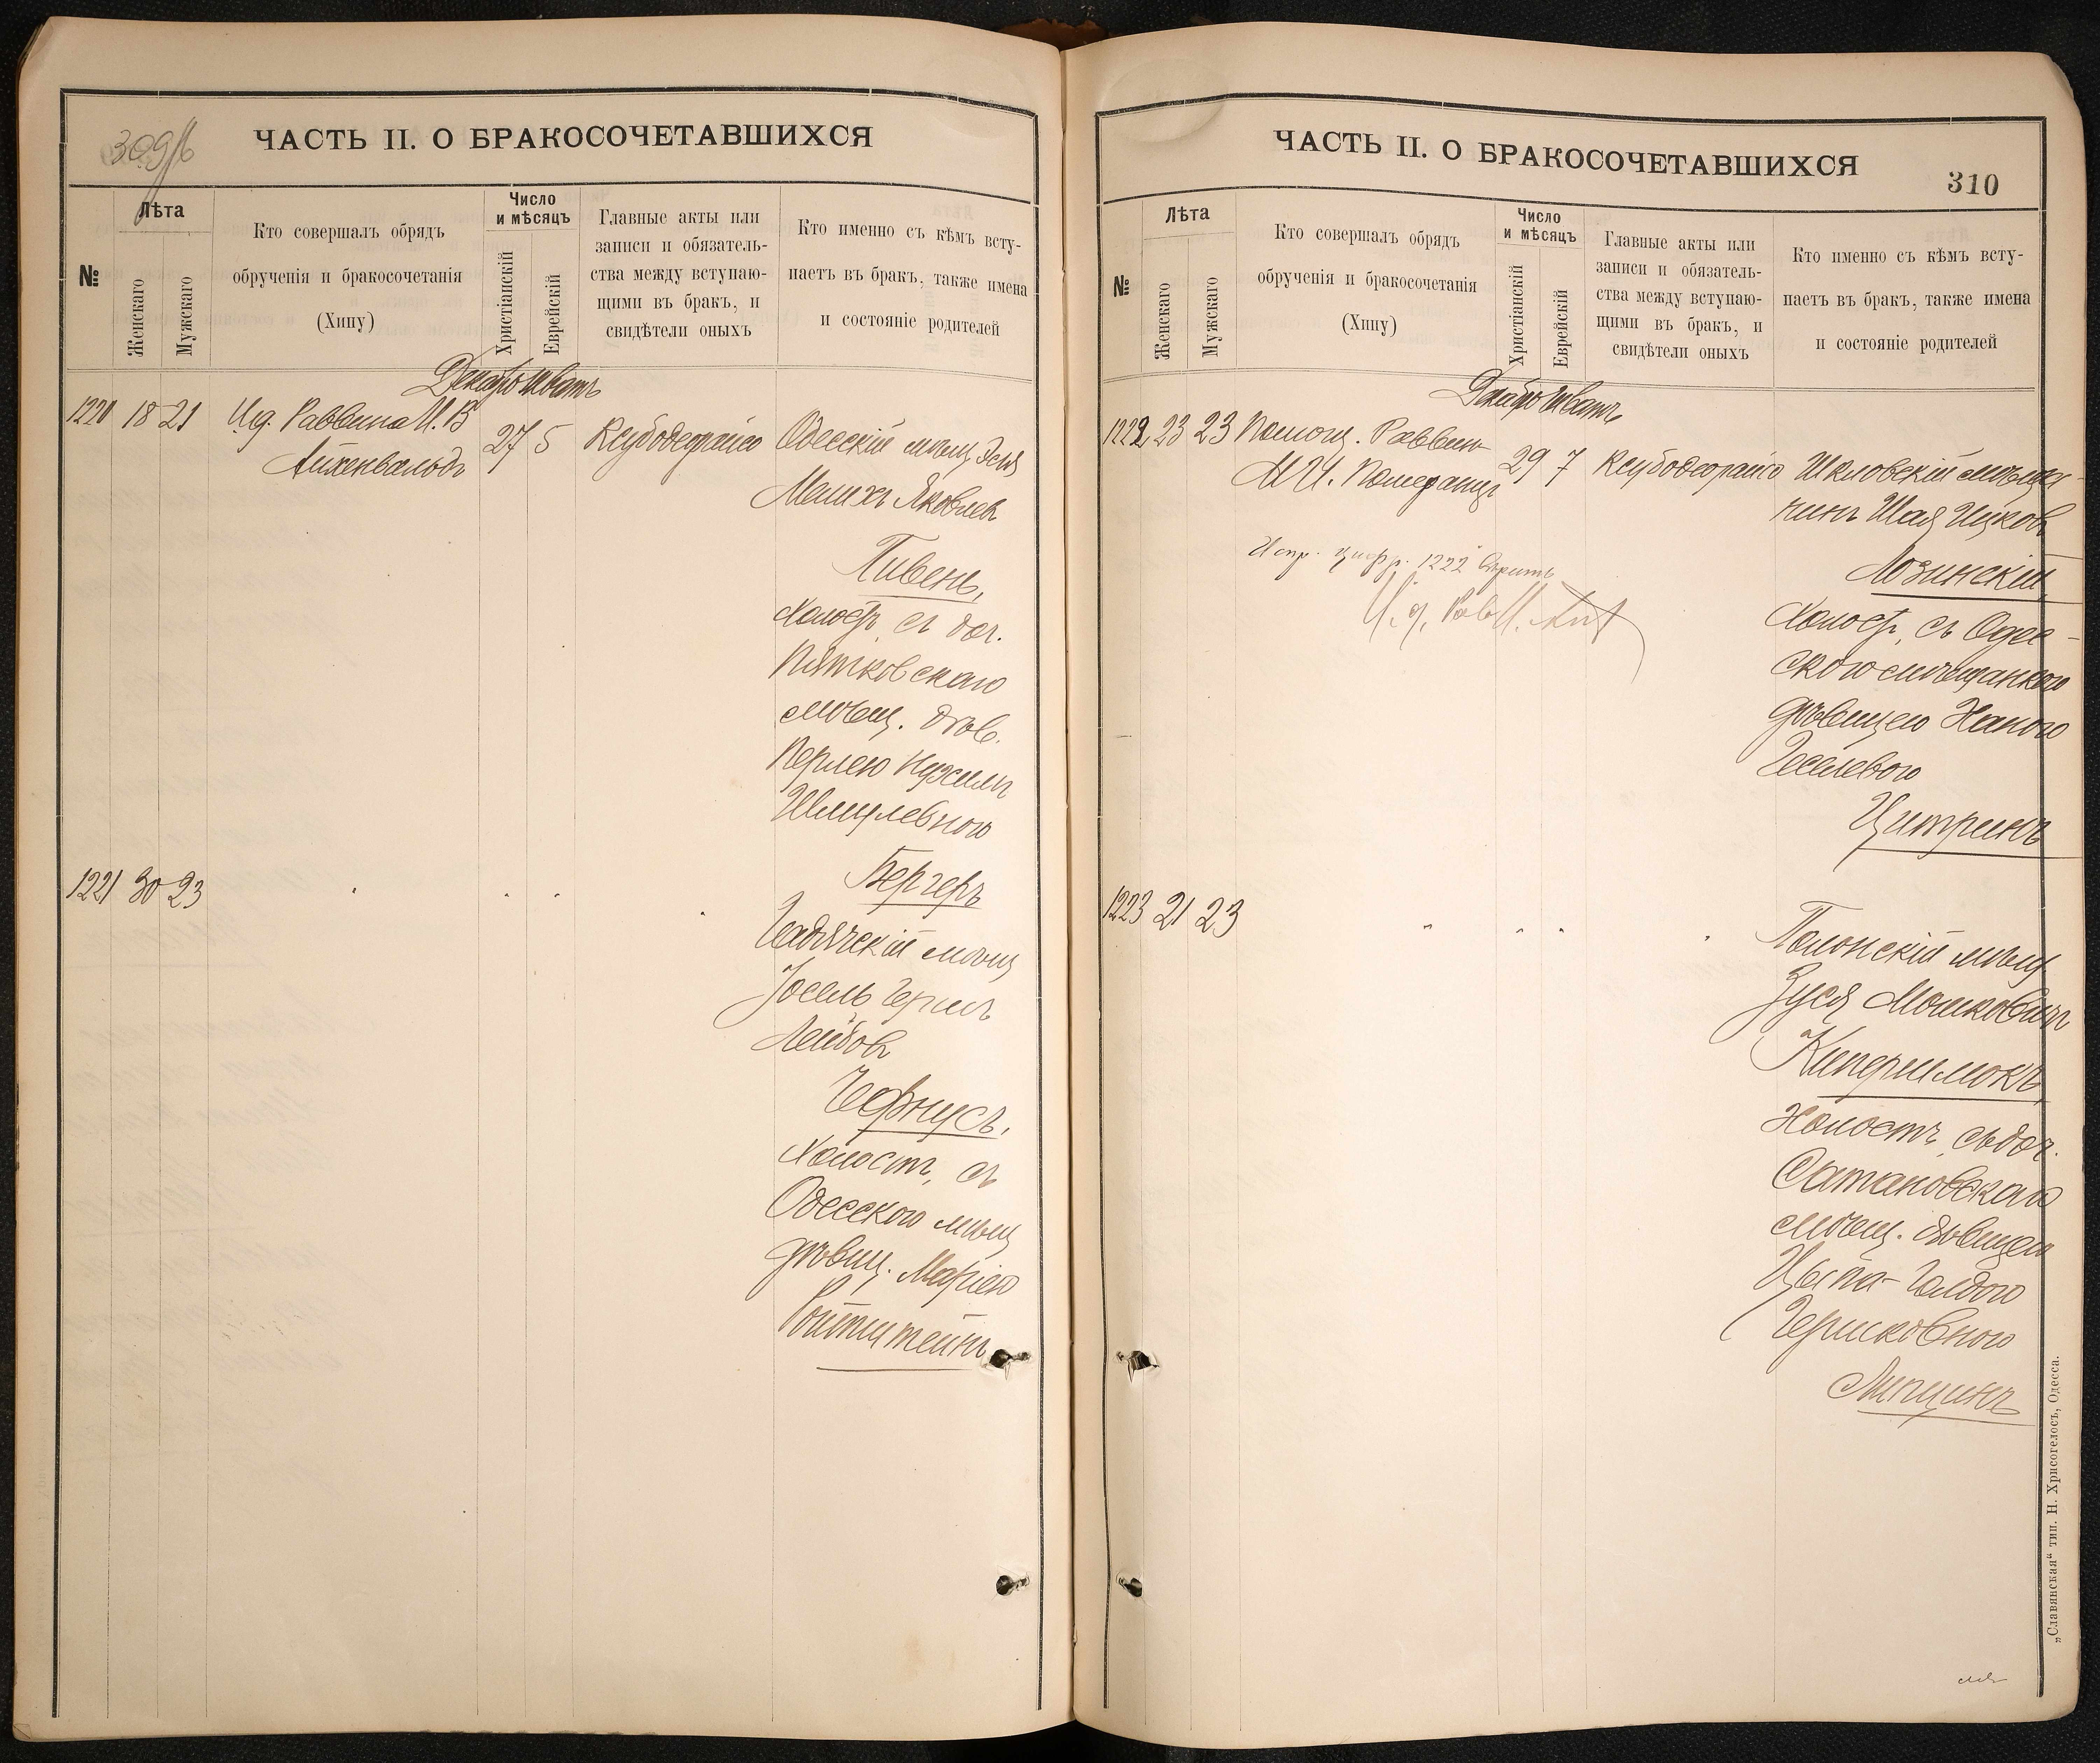 309об
ЧАСТЬ II. О БРАКОСОЧЕТАВШИХСЯ
№
Лѣта
Женскаго
Мужскаго
Кто совершалъ обрядъ
обрученія и бракосочетанія
(Хипу)
Число
и мѣсяцъ
Христіанскій
Еврейскій
Главные акты или
записи и обязатель-
ства между вступаю-
щими въ бракъ, и
свидѣтели оныхъ
Кто именно съ кѣмъ всту-
паетъ въ бракъ, также имена
и состояніе родителей
Декабрь Шватъ
1220 18 21
И.д. Раввина И. В
Айхенвальдъ
27 5
Ксубодеорайсо
Одесскій мѣщ.
Яковлев
Пивень,
Холост, съ доч.
Пятковскаго
мѣщ. дѣв.
Перлею
Шмулевною
Бергеръ
1221 30 23
Гадячскій мѣщ
Іосель Герш
Лейбов
Чефнусъ,
Холостъ, съ
Одесскою мѣщ
дѣвиц. Маріею
Ройтштейнъ
ЧАСТЬ II. О БРАКОСОЧЕТАВШИХСЯ
310
№
Лѣта
Женскаго
Мужскаго
Кто совершалъ обрядъ
обрученія и бракосочетанія
(Хипу)
Число
и мѣсяцъ
Христіанскій
Еврейскій
Главные акты или
записи и обязатель-
ства между вступаю-
щими въ бракъ, и
свидѣтели оныхъ
Кто именно съ кѣмъ всту-
паетъ въ бракъ, также имена
и состояніе родителей
Декабрь Шватъ
1222 23 23
Помощ. Раввина
М И. Померанцъ
29 7
Ксубодеорайсо
Испр. цифр. 1222 вѣрить
И.д. Рав И. Айх
Шкловскій мѣща-
нинъ Шая Ицков
Лозинскій,
Холост, съ Одес-
скою мѣщанкою
дѣвицею Ханою
Геселевою
Цитринъ
1223 21 23
Полонскій мѣщ
Зуся Мошковичъ
Кипершмокъ,
Холостъ, съ доч.
Сатановскаго
мѣщ. дѣвицею
Цыпа-Голдою
Гершковною
Липцинъ
„Славянская“ тип. Н. Хрисогелосъ, Одесса.